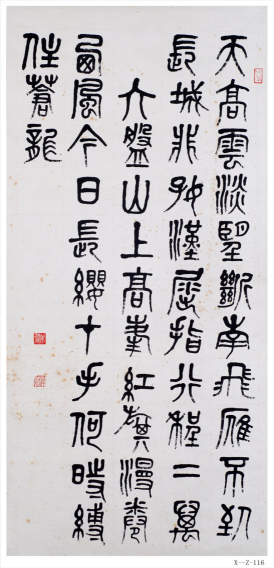 天高雲淡望斷南飛雁不到
長城非好漢屈指行程二萬
六盤山上高峯紅旗漫卷
西風今日長纓在手何時縛
住蒼龍
X—Z-116